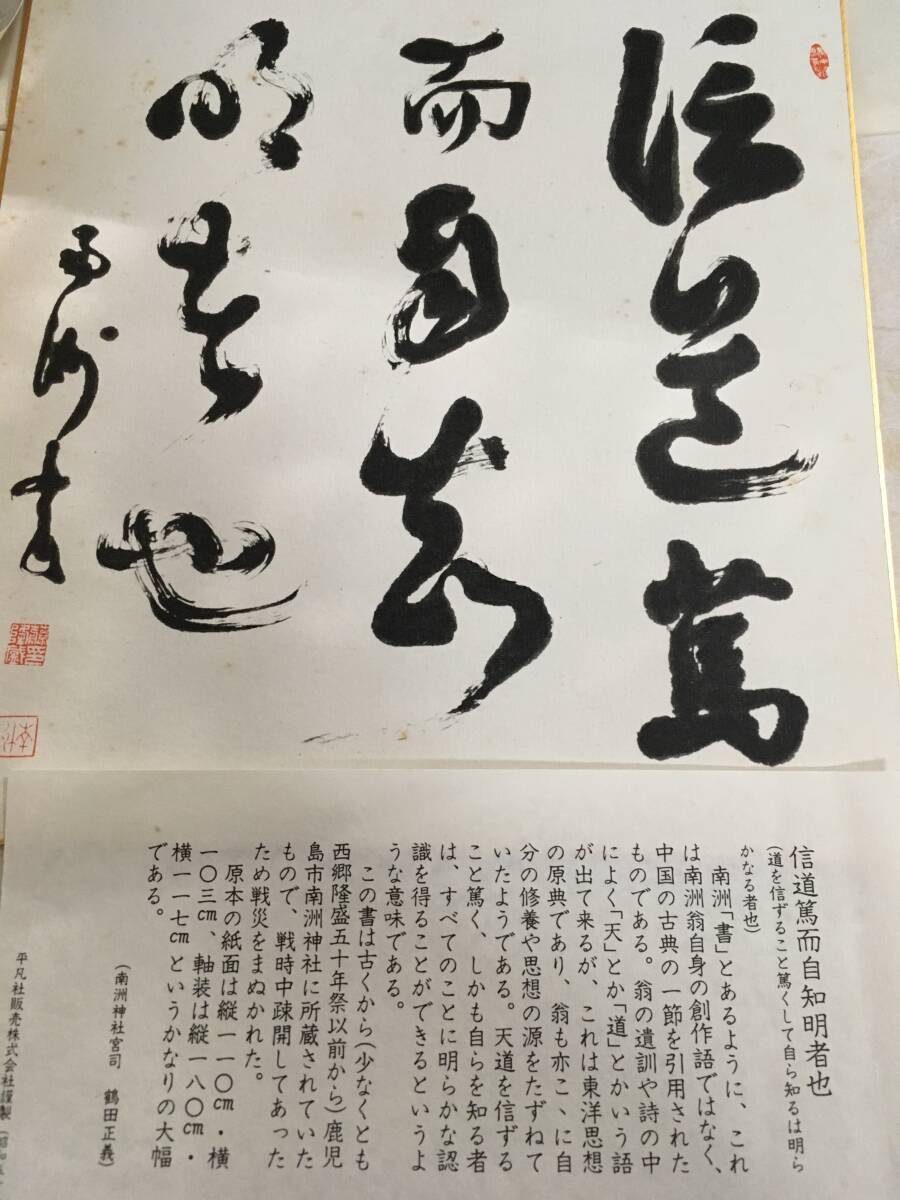 信道篤
而自知
明者也
南洲書
信道篤而自知明者也
(道を信ずること篤くして自ら知るは明ら
かなる者也)
南洲「書」とあるように、これ
は南洲翁自身の創作語ではなく、
中国の古典の一節を引用された
ものである。翁の遺訓や詩の中
によく「天」とか「道」とかいう語
が出て来るが、これは東洋思想
の原典であり、翁も亦こゝに自
分の修養や思想の源をたずねて
いたようである。天道を信ずる
こと篤く、しかも自らを知る者
は、すべてのことに明らかな認
識を得ることができるというよ
うな意味である。
この書は古くから(少なくとも
西郷隆盛五十年祭以前から)鹿児
島市南洲神社に所蔵されていた
もので、戦時中疎開してあった
ため戦災をまぬかれた。
原本の紙面は縦一一〇cm・横
一〇三cm、軸装は縦一八〇cm・
横一一七cmというかなりの大幅
である。
(南洲神社宮司 鶴田正義)
平凡社販売株式会社謹製